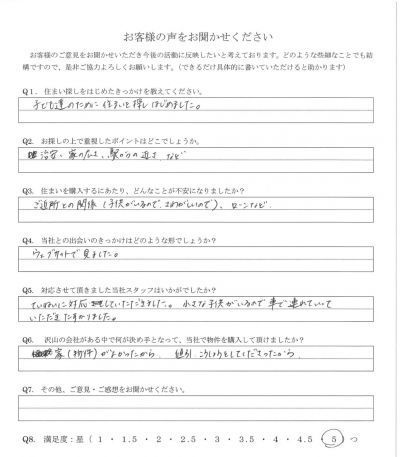 お客様の声をお聞かせください
お客様のご意見をお聞かせいただき今後の活動に反映したいと考えております。どのような些細なことでも結
構ですので、是非ご協力よろしくお願いします。(できるだけ具体的に書いていただけると助かります)
Q1. 住まい探しをはじめたきっかけを教えてください。
子ども達のために住まいを探しはじめました。
Q2. お探しの上で重視したポイントはどこでしょうか。
治安、家の広さ、駅からの近さ など
Q3. 住まいを購入するにあたり、どんなことが不安になりましたか?
ご近所との関係(子供がいるので、さわがしいので)、ローンなど
Q4. 当社との出会いのきっかけはどのような形でしょうか?
ウェブサイトで見ました。
Q5. 対応させて頂きました当社スタッフはいかがでしたか?
ていねいに対応していただきました。小さな子供がいるので車で連れていって
いただきたすかりました。
Q6. 沢山の会社がある中で何が決め手となって、当社で物件を購入して頂けましたか?
家(物件)がよかったから、値引こうしょうをしてくださったから
Q7. その他、ご意見・ご感想をお聞かせください。
Q8. 満足度:星( 1 ・ 1.5 ・ 2 ・ 2.5 ・ 3 ・ 3.5 ・ 4 ・ 4.5 ・ 5 )つ